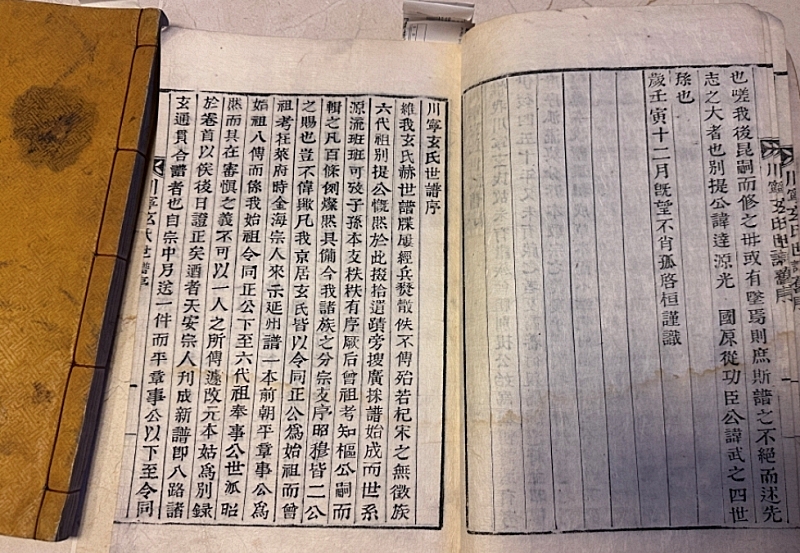 川寧玄氏世譜舊序
也嗟我後昆嗣而修之毋或有墜焉則庶斯譜之不絕而述先
志之大者也別提公諱達源光 國原從功臣公諱武之四世
孫也
歲壬寅十二月旣望不肖孤啓桓謹識
川寧玄氏世譜序
維我玄氏赫世譜牒屢經兵燹散佚不傳殆若杞宋之無徵族
六代祖別提公慨然於此掇拾遺蹟旁搜廣採譜始成而世系
源流班班可攷子孫本支秩秩有序厥后曾祖考知樞公嗣而
輯之凡百條例燦然具備今我諸族之分宗支序昭穆皆二公
之賜也豈不偉歟凡我京居玄氏皆以令同正公爲始祖而曾
祖考莅萊府時金海宗人來示延州譜一本前朝平章事公爲
始祖八傳而係我始祖令同正公下至六代祖奉事公世派昭
然而具在審愼之義不可以一人之所傳遽改元本姑爲別錄
於卷首以俟後日證正矣迺者天安宗人刋成新譜卽八路諸
玄通貫合譜者也自宗中另送一件而平章事公以下至令同
川寧玄氏世譜序